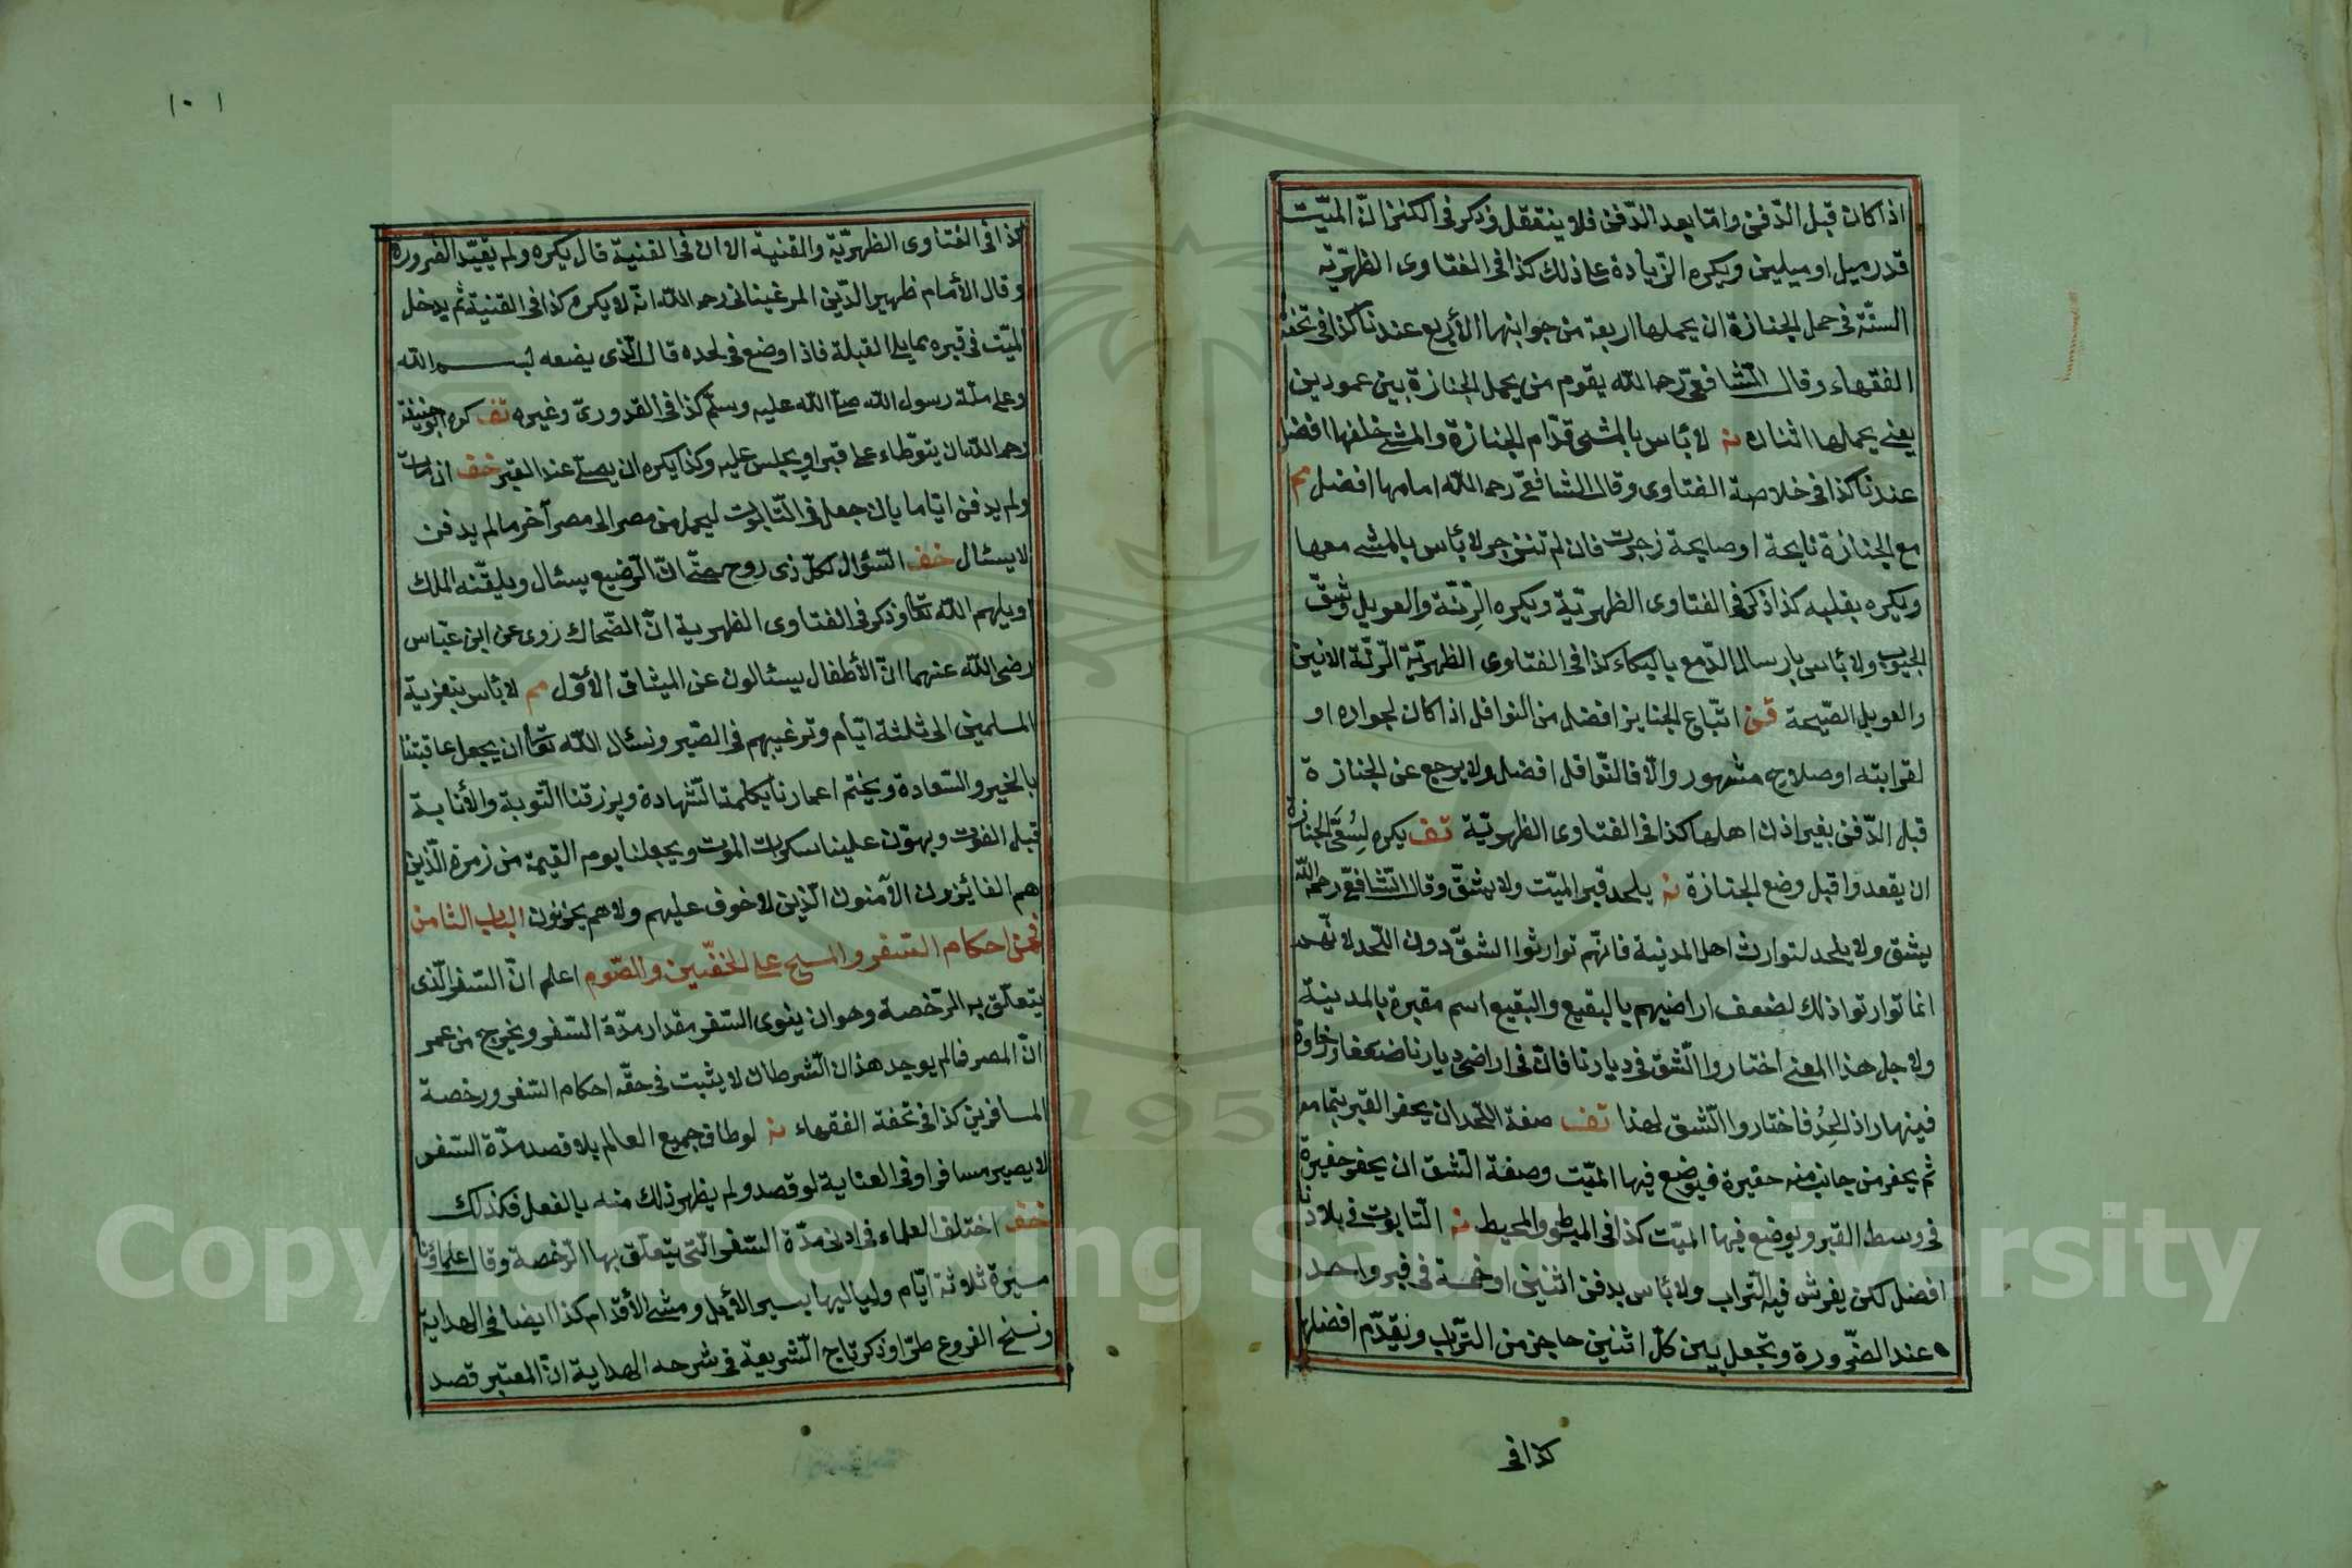 اذا كان قبل الدّفن وامّا بعد الدّفن فلا ينتقل وذكر فى الكنز انّ الميّت
قدر ميل او ميلين ويكره الزّيادة على ذلك كذا فى الفتاوى الظهرّية
السنّة فى حمل الجنازة ان يحملها اربعة من جوابنها الأربع عندنا كذا فى تحفة
الفقهاء وقال الشافعىّ رحمه الله يقوم من يحمل الجنازة بين عمودين
يعنى يحملها اثنان نه لا بأس بالمشى قدّام الجنازة والمشى خلفها افضل
عندنا كذا فى خلاصة الفتاوى وقال الشافعىّ رحمه الله امامها افضل مم
مع الجنازة نايحة او صايحة زجرت فان لم تنزجر لا بأس بالمشى معها
ويكره بقلبه كذا ذكر فى الفتاوى الظهرّية ويكره الرّنّة والعويل وشقّ
الجيوب ولا بأس بارسال الدّمع بالبكاء كذا فى الفتاوى الظهرّية الرّنّة الانين
والعويل الصّيحة قن اتّباع الجنايز افضل من النوافل اذا كان لجواره او
لقرابته او صلاح مشهور والّا فالنّوافل افضل ولا يرجع عن الجنازة
قبل الدّفن بغير اذن اهلها كذا فى الفتاوى الظهرّية تف يكره الجنازة
ان يقعدوا قبل وضع الجنازة نه يلحد قبر الميّت ولا يشقّ وقال الشافعىّ رحمه الله
يشق ولا يلحد لتوارث اهل المدينة فانّهم توارثوا الشقّ دون اللّحد لانّهم
انما توارثوا ذلك لضعف اراضيهم بالبقيع والبقيع اسم مقبرة بالمدينة
ولاجل هذا المعنى اختاروا الشّق فى ديارنا فانّ فى اراضى ديارنا ضعفا ورخاوة
فينهار اذا لحد فاختاروا الشّق لهذا تف صفة اللّحد ان يحفر القبر بتمامه
ثم يحفر من جانب منه حفيرة فيوضع فيها الميّت وصفة الشق ان يحفر حفيرة
فى وسط القبر ويوضع فيها الميّت كذا فى المبسّوط والمحيط نه التّابوت فى بلادنا
افضل لكن يفرش فيه التّراب ولا بأس بدفن اثنين او خمسة فى قبر واحد
عند الضّرورة ويجعل بين كلّ اثنين حاجز من التّراب ويقدّم افضلها
كذا فى
١٠١
كذا فى الفتاوى الظهرّية والقنية الا ان فى القنية قال يكره ولم يقيّد الضرورة
وقال الأمام ظهير الدّين المرغينانى رحمه الله انّه لا يكره كذا فى القنية ثم يدخل
الميّت فى قبره مما يلى القبلة فاذا وضع فى لحده قال الّذى يضعه بسم الله
وعلى ملّة رسول الله صلّى الله عليه وسلّم كذا فى القدورىّ وغيره تف كره ابو حنيفة
رحمه الله ان يتوّطاء على قبر او يجلس عليه وكذا يكره ان يصلّى عند القبر خف ان مات
ولم يدفن ايّاما بان جعل فى التّابوت ليحمل من مصر الى مصر آخر مالم يدفن
لا يسئال خف السّؤال لكلّ ذى روح حتّى انّ الرّضيع يسئال ويلقّنه الملك
او يلهم الله تعالى وذكر فى الفتاوى الظهرية انّ الضّحاك روى عن ابن عبّاس
رضى الله عنهما انّ الأطفال يسئالون عن الميثاق الأوّل مم لا بأس بتعزية
المسلمين الى ثلثة ايّام وترغيبهم فى الصّبر ونسئال الله تعالى ان يجعل عاقبتنا
بالخير والسّعادة ويختم اعمارنا بكلمة الشّهادة ويرزقنا التّوبة والأنابة
قبل الفوت ويهوّن علينا سكرات الموت ويجعلنا يوم القيمة من زمرة الّذين
هم الفائيزون الآمنون الّذين لا خوف عليهم ولا هم يحزنون الباب الثامن
فى احكام السّفر والمسح على الخفّين والصّوم اعلم انّ السّفر الّذى
يتعلّق به الرّخصة وهو ان ينوى السّفر مقدار مدّة السّفر ويخرج من عمر
انّ المصر فما لم يوجد هذان الشّرطان لا يثبت فى حقّه احكام السّفر ورخصة
المسافرين كذا فى تحفة الفقهاء نه لو طاف جميع العالم بلا قصد مدّة السّفر
لا يصير مسافرا وفى العناية لو قصد ولم يظهر ذلك منه بالفعل فكذلك
خف اختلف العلماء فى ادنى مدّة السّفر الّتى يتعلّق بها الرّخصة وقال علماؤنا
مسيرة ثلاثة ايّام ولياليها بسير الأبل ومشى الأقدام كذا ايضا فى الهداية
ونسخ الفروع طرّا وذكر تاج الشّريعة فى شرحه الهداية انّ المعتبر قصد
Copyright © King Saud University